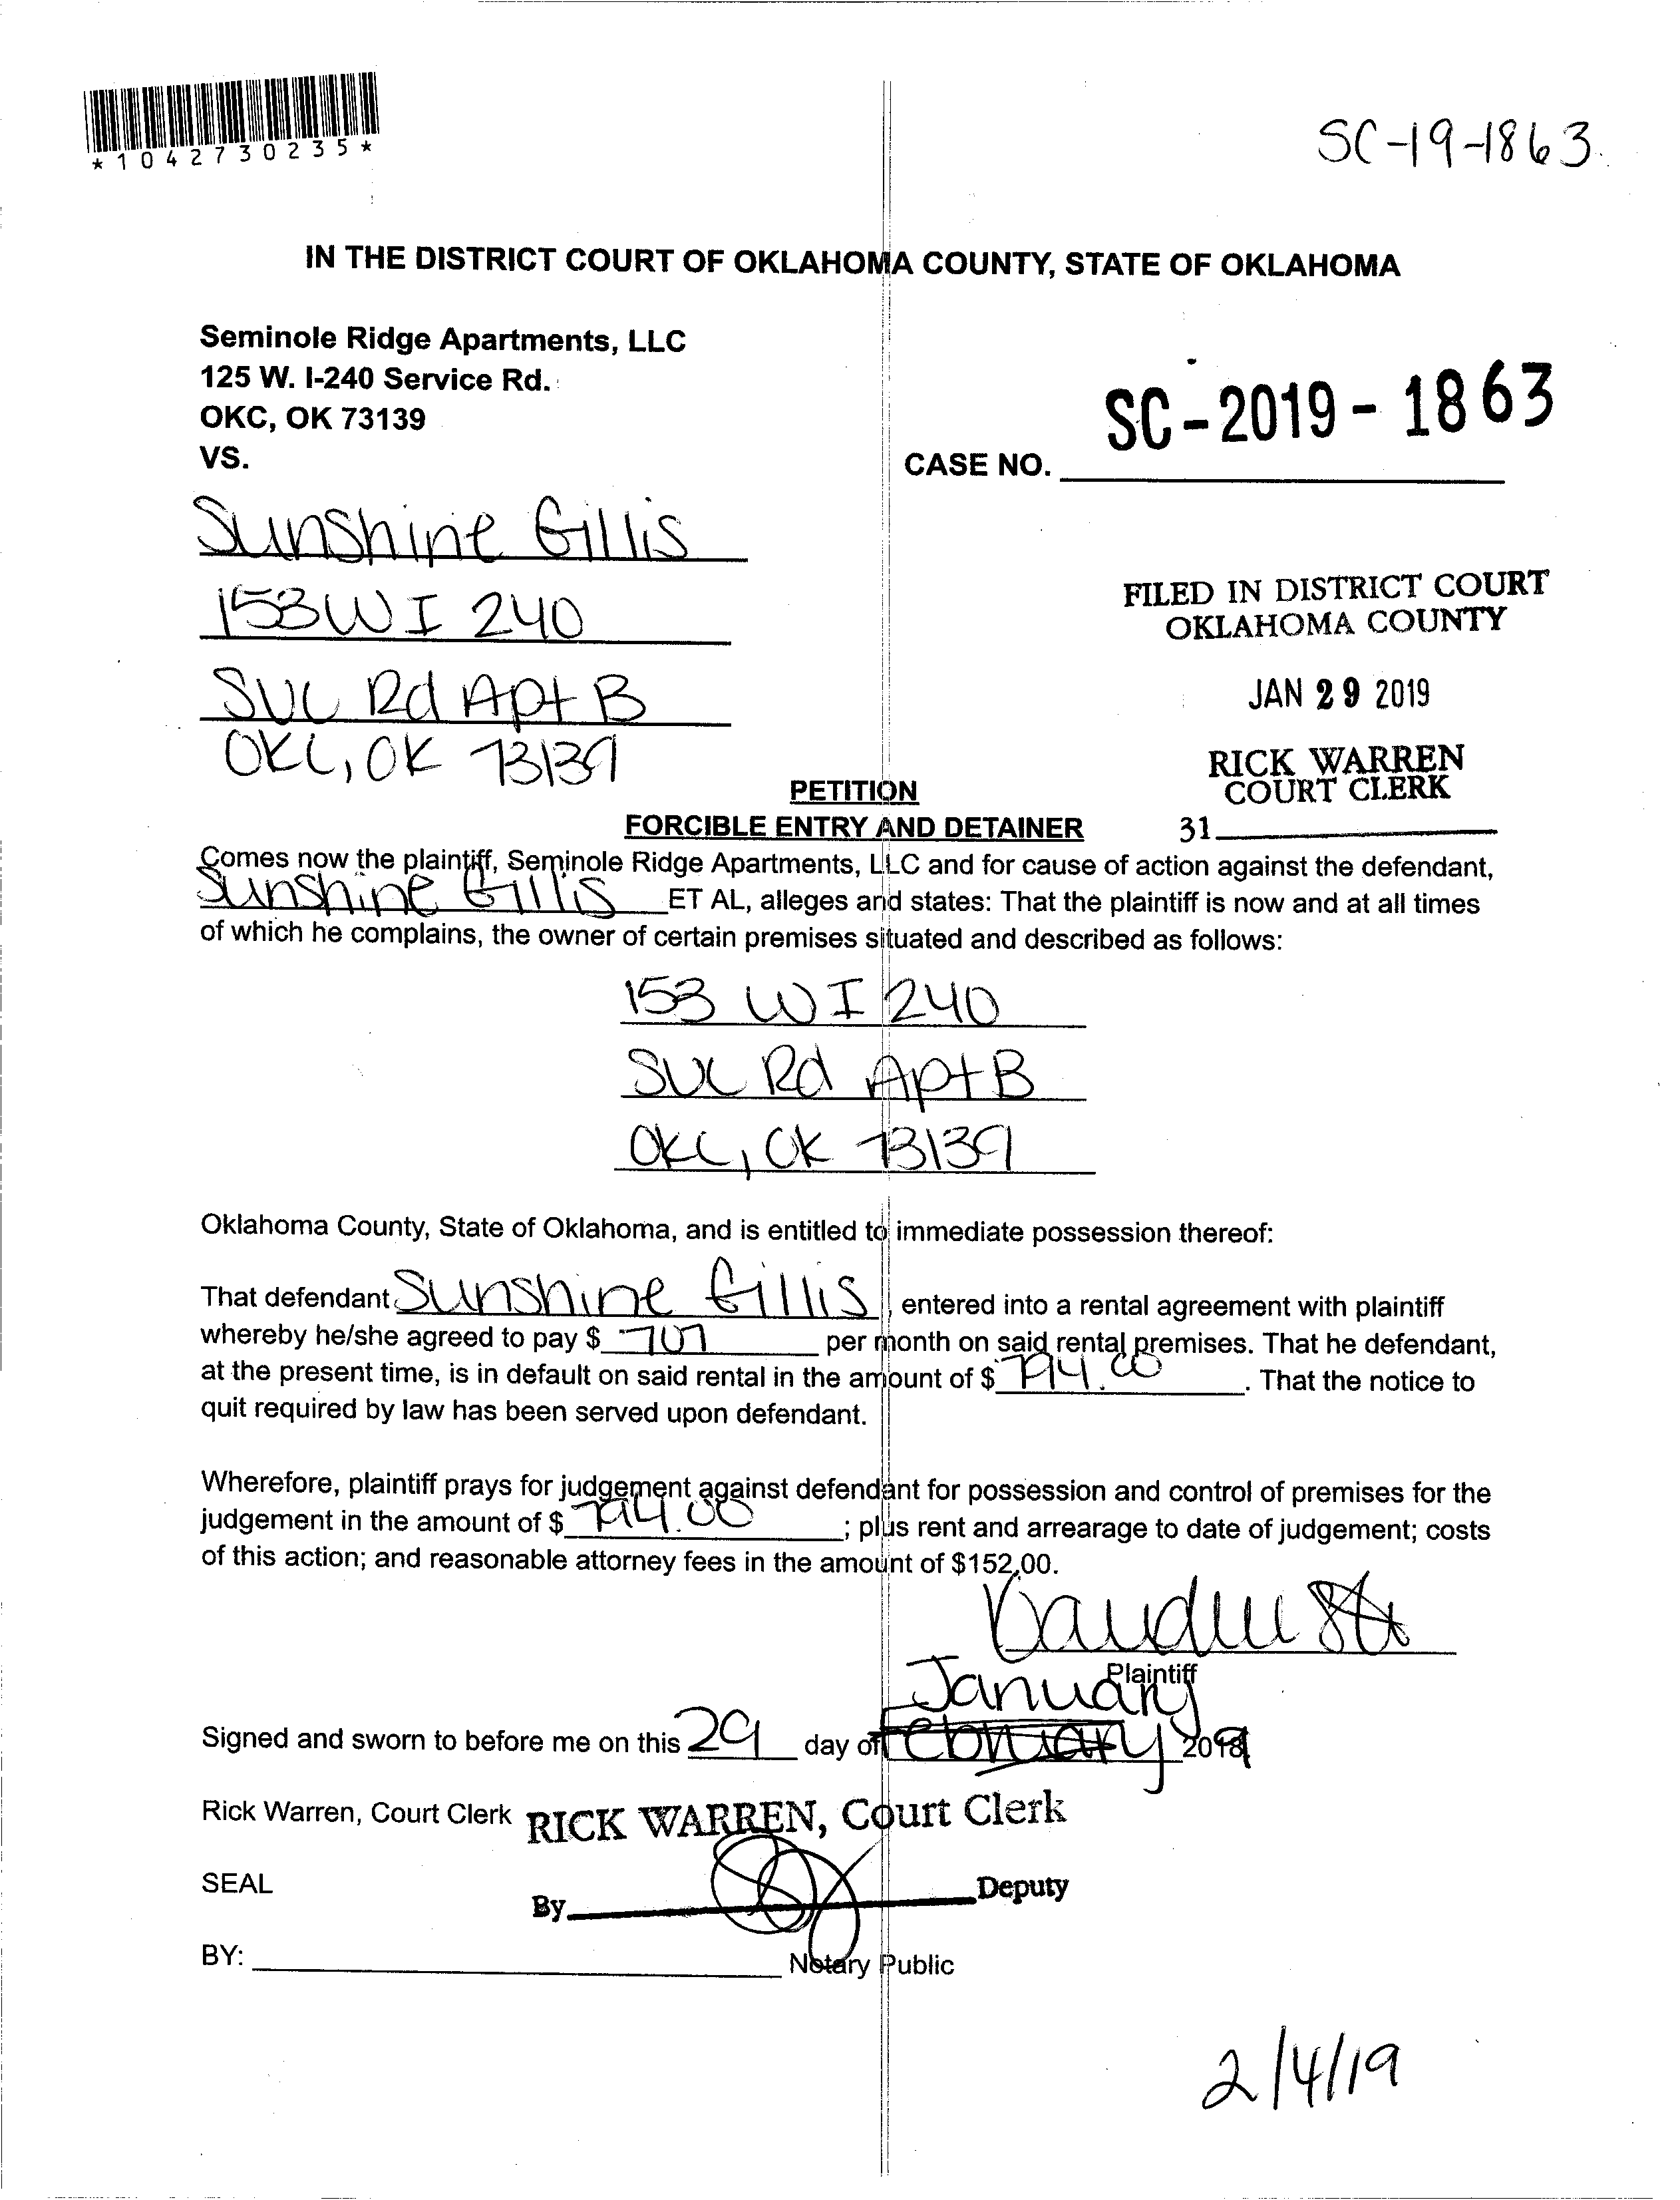 *1042730235*
SC-19-1863
IN THE DISTRICT COURT OF OKLAHOMA COUNTY, STATE OF OKLAHOMA
Seminole Ridge Apartments, LLC
125 W. I-240 Service Rd.
OKC, OK 73139
VS.
SC-2019-1863
CASE NO.
Sunshine Gillis
153 W I 240
SVC Rd Apt B
OKC, OK 73139
FILED IN DISTRICT COURT
OKLAHOMA COUNTY
JAN 29 2019
RICK WARREN
COURT CLERK
31
PETITION
FORCIBLE ENTRY AND DETAINER
Comes now the plaintiff, Seminole Ridge Apartments, LLC and for cause of action against the defendant,
Sunshine Gillis ET AL, alleges and states: That the plaintiff is now and at all times
of which he complains, the owner of certain premises situated and described as follows:
153 W I 240
SVC Rd Apt B
OKC, OK 73139
Oklahoma County, State of Oklahoma, and is entitled to immediate possession thereof:
That defendant Sunshine Gillis, entered into a rental agreement with plaintiff
whereby he/she agreed to pay $ 707 per month on said rental premises. That he defendant,
at the present time, is in default on said rental in the amount of $ 794.00. That the notice to
quit required by law has been served upon defendant.
Wherefore, plaintiff prays for judgement against defendant for possession and control of premises for the
judgement in the amount of $ 794.00; plus rent and arrearage to date of judgement; costs
of this action; and reasonable attorney fees in the amount of $152.00.
Plaintiff
January
Signed and sworn to before me on this 29 day of February 2019
Rick Warren, Court Clerk RICK WARREN, Court Clerk
SEAL
By Deputy
BY: Notary Public
2/4/19